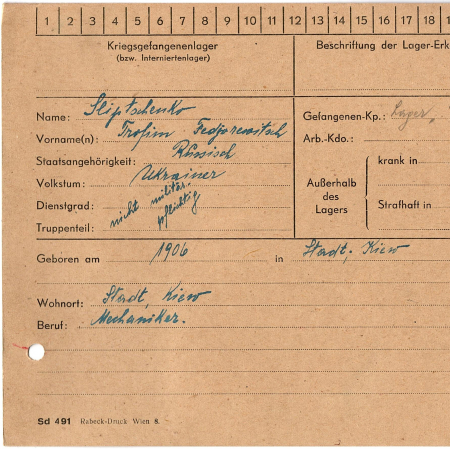 1 2 3 4 5 6 7 8 9 10 11 12 13 14 15 16 17 18
Kriegsgefangenenlager
(bzw. Interniertenlager)
Beschriftung der Lager-Erk
Name: Sliptschenko
Vorname(n): Trofim Fedjorewitsch
Staatsangehörigkeit: Russisch
Volkstum: Ukrainer
Dienstgrad: nicht militär
Truppenteil: pflichtig
Gefangenen-Kp.: Lager
Arb.-Kdo.:
Außerhalb des Lagers
krank in
Strafhaft in
Geboren am 1906 in Stadt, Kiew
Wohnort: Stadt, Kiew
Beruf: Mechaniker.
Sd 491 Rabeck-Druck Wien 8.